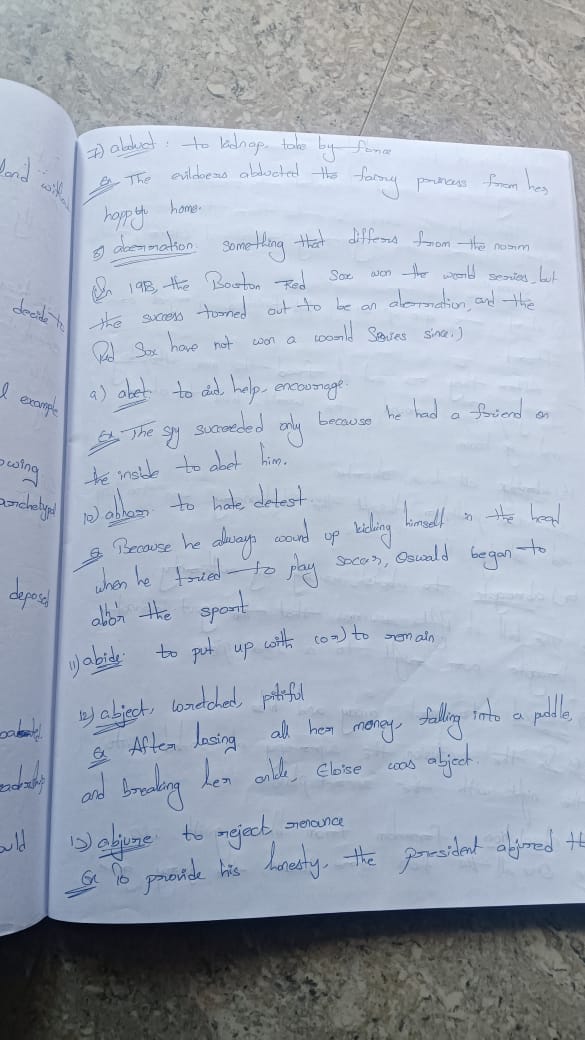 land with
decide to
example
owing
archetypal
depose
ould
7) abduct : to kidnap. take by force
Ex The evildoers abducted the fairy princess from her
happy home.
8) aberration: something that differs from the norm
(In 1918, the Boston Red Sox won the world series, but
the success turned out to be an aberration, and the
Red Sox have not won a world Series since.)
9) abet: to aid, help, encourage.
Ex The spy succeeded only because he had a friend on
the inside to abet him.
10) abhor: to hate detest
Ex Because he always wound up kicking himself in the head
when he tried to play soccer, Oswald began to
abhor the sport
11) abide: to put up with (or) to remain
12) abject, wretched, pitiful
Ex After losing all her money, falling into a puddle,
and breaking her ankle, Eloise was abject.
13) abjure: to reject renounce
Ex To provide his honesty, the president abjured the